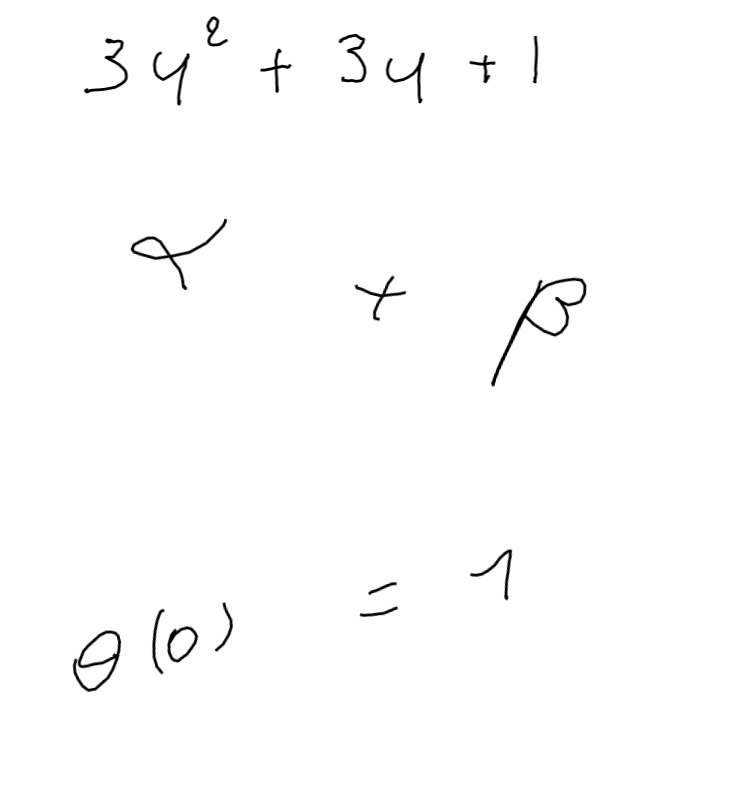 3y² + 3y + 1
α + β
θ(0) = 1